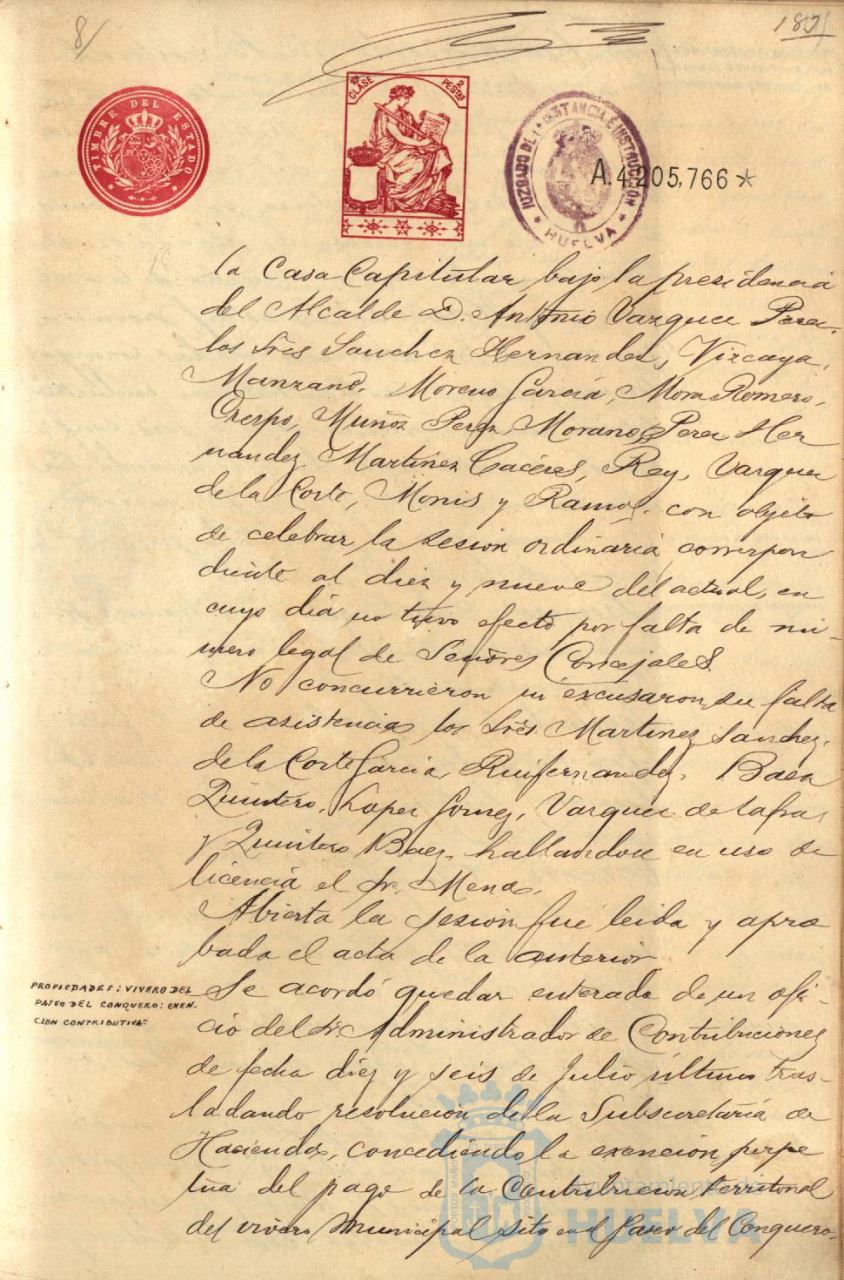 8/
187/
TIMBRE DEL ESTADO
CLASE
2 PESETAS
JUZGADO DE 1ª INSTANCIA E INSTRUCCIÓN
HUELVA
A.4.205,766*
la Casa Capitular bajo la presidencia
del Alcalde D. Antonio Vazquez Perez,
los Sres Sanchez Hernandez, Vizcaya,
Manzano, Moreno García, Mora Romero,
Crespo, Muñoz Perez, Morano, Perez Her
nandez, Martinez Cacéres, Rey, Vazquez
de la Corte, Monis y Ramos, con objeto
de celebrar la sesion ordinaria correspon
diente al diez y nueve del actual, en
cuyo dia no tuvo efecto por falta de nú-
mero legal de Señores Concejales.
No concurrieron ni excusaron su falta
de asistencia los Sres Martinez Sanchez,
de la Corte García, Ruifernandez, Baea
Quintero, Lopez Gomez, Vazquez de Zafra,
y Quintero Baez, hallandose en uso de
licencia el Sr. Mena.
Abierta la sesion fué leida y apro
bada el acta de la anterior
PROPIEDADES: VIVERO DEL
PASEO DEL CONQUERO: EXEN-
CION CONTRIBUTIVA
Se acordó quedar enterado de un ofi-
cio del Sr. Administrador de Contribuciones
de fecha diez y seis de Julio último tras-
ladando resolucion de la Subsecretaría de
Hacienda, concediendo la exencion perpe
tua del pago de la Contribucion territorial
del vivero Municipal sito en el Paseo del Conquero.
Ayuntamiento de
HUELVA